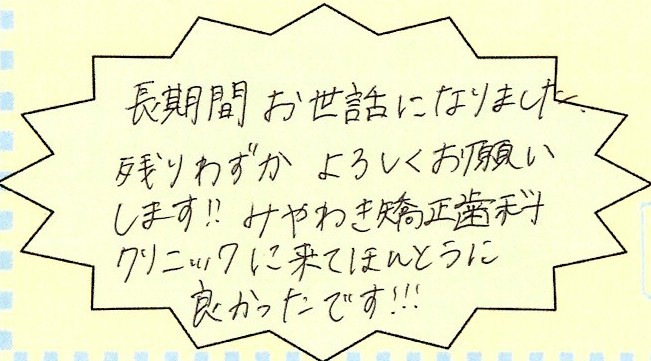 長期間 お世話になりました。
残りわずか よろしくお願い
します!! みやわき矯正歯科
クリニックに来てほんとうに
良かったです!!!